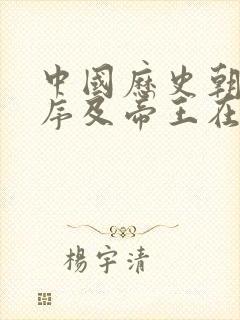 中國歷史朝
序及帝王在
楊宇清